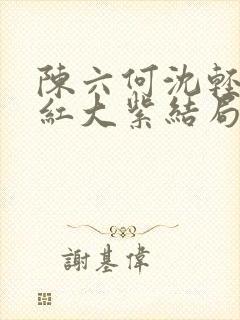 陳六何沈輕
紅大紫結局
謝基偉